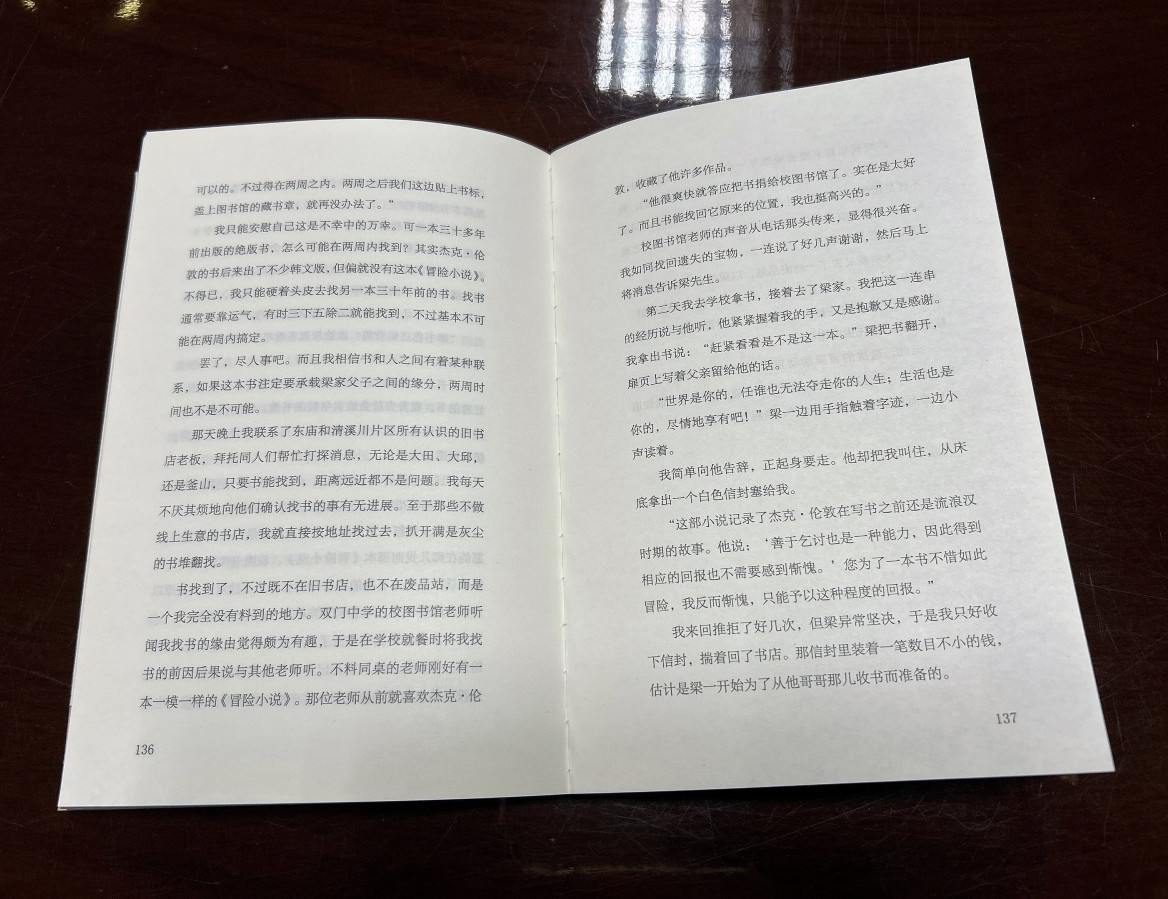 可以的。不过得在两周之内。两周之后我们这边贴上书标，
盖上图书馆的藏书章，就再没办法了。”
我只能安慰自己这是不幸中的万幸。可一本三十多年
前出版的绝版书，怎么可能在两周内找到？其实杰克·伦
敦的书后来出了不少韩文版，但偏就没有这本《冒险小说》。
不得已，我只能硬着头皮去找另一本三十年前的书。找书
通常要靠运气，有时三下五除二就能找到，不过基本不可
能在两周内搞定。
罢了，尽人事吧。而且我相信书和人之间有着某种联
系，如果这本书注定要承载梁家父子之间的缘分，两周时
间也不是不可能。
那天晚上我联系了东庙和清溪川片区所有认识的旧书
店老板，拜托同人们帮忙打探消息，无论是大田、大邱，
还是釜山，只要书能找到，距离远近都不是问题。我每天
不厌其烦地向他们确认找书的事有无进展。至于那些不做
线上生意的书店，我就直接按地址找过去，扒开满是灰尘
的书堆翻找。
书找到了，不过既不在旧书店，也不在废品站，而是
一个我完全没有料到的地方。双门中学的校图书馆老师听
闻我找书的缘由觉得颇为有趣，于是在学校就餐时将我找
书的前因后果说与其他老师听。不料同桌的老师刚好有一
本一模一样的《冒险小说》。那位老师从前就喜欢杰克·伦
136
敦，收藏了他许多作品。
“他很爽快就答应把书捐给校图书馆了。实在是太好
了。而且书能找回它原来的位置，我也挺高兴的。”
校图书馆老师的声音从电话那头传来，显得很兴奋。
我如同找回遗失的宝物，一连说了好几声谢谢，然后马上
将消息告诉梁先生。
第二天我去学校拿书，接着去了梁家。我把这一连串
的经历说与他听，他紧紧握着我的手，又是抱歉又是感谢。
我拿出书说：“赶紧看看是不是这一本。”梁把书翻开，
扉页上写着父亲留给他的话。
“世界是你的，任谁也无法夺走你的人生；生活也是
你的，尽情地享有吧！”梁一边用手指触着字迹，一边小
声读着。
我简单向他告辞，正起身要走。他却把我叫住，从床
底拿出一个白色信封塞给我。
“这部小说记录了杰克·伦敦在写书之前还是流浪汉
时期的故事。他说：‘善于乞讨也是一种能力，因此得到
相应的回报也不需要感到惭愧。’您为了一本书不惜如此
冒险，我反而惭愧，只能予以这种程度的回报。”
我来回推拒了好几次，但梁异常坚决，于是我只好收
下信封，揣着回了书店。那信封里装着一笔数目不小的钱，
估计是梁一开始为了从他哥哥那儿收书而准备的。
137